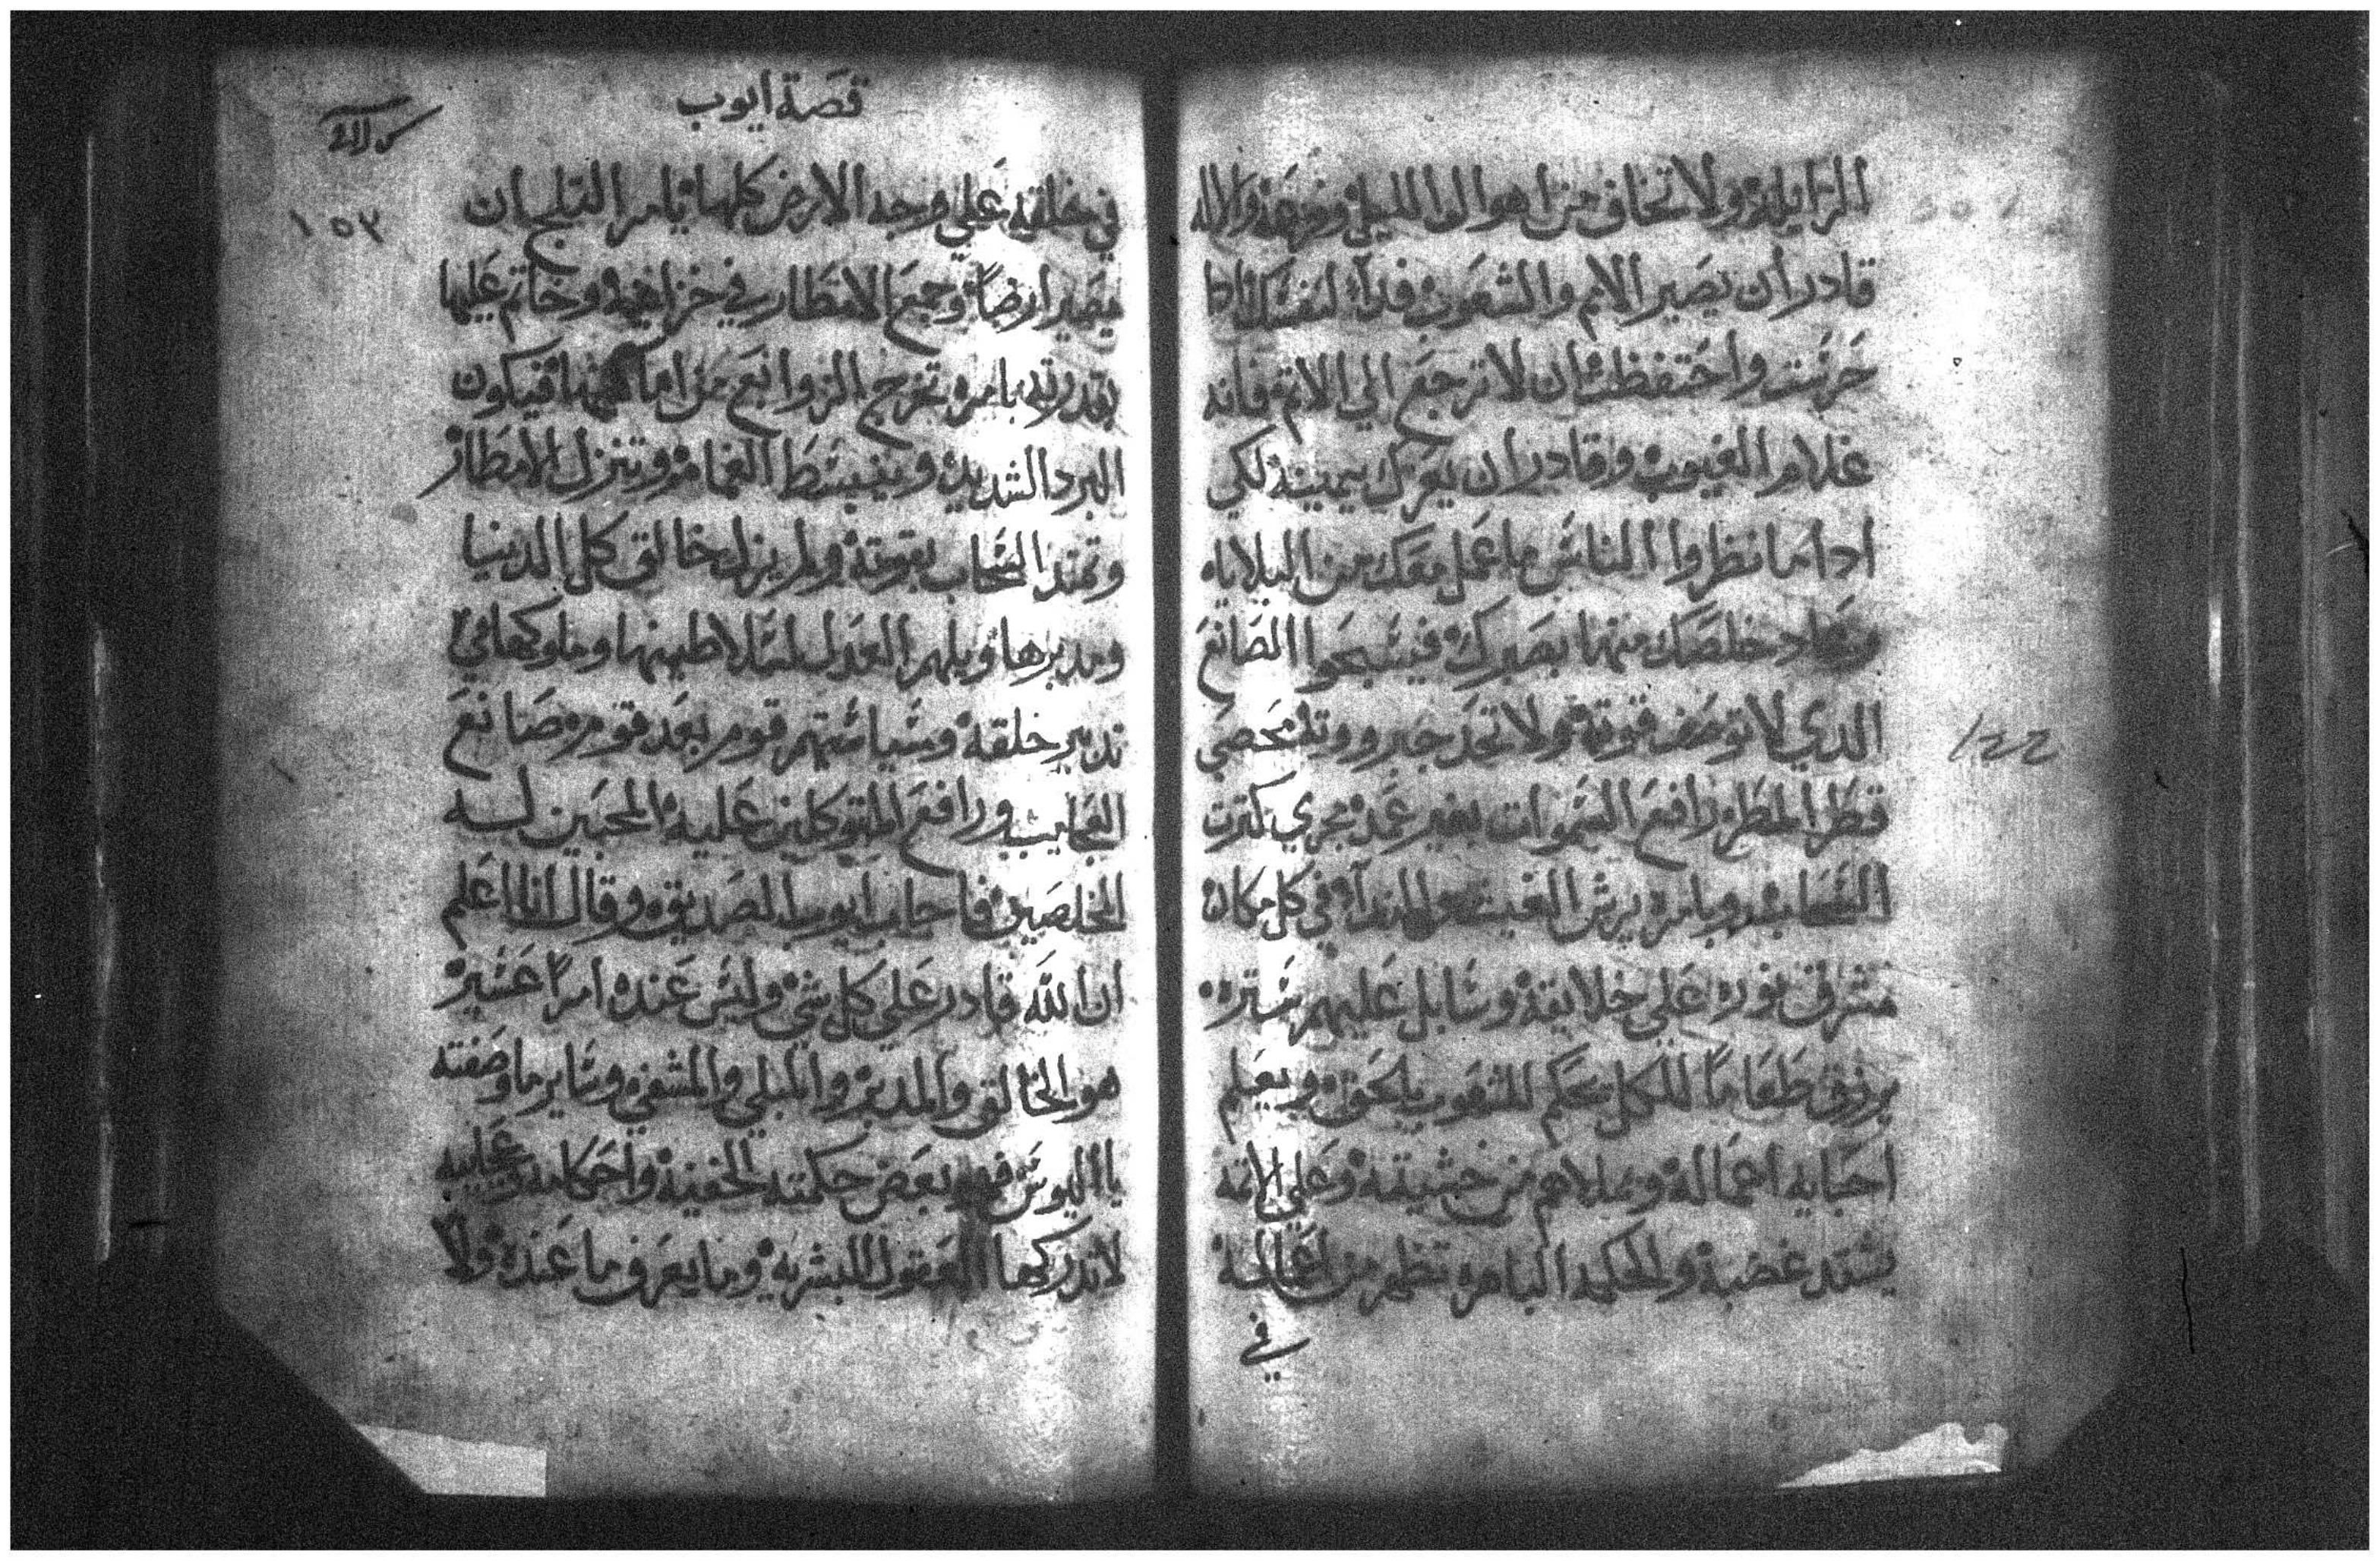 الزايله ولا تخاف من اهوال الليل وفزعه والاله
قادر ان يصير الامم والشعوب فدآء لنفسك اذا
حرست واحتفظت ان لا ترجع الي الاثم فانه
علام الغيوب وقادر ان يعزك بيمينه لكي
اداما نظروا الناس ما عمل معك من البلايا
وعاد خلصك منها بصبرك فيسبحوا الصانع
الدي لا توصف قوته ولا تحد جبرووته محصي
قطر المطر رافع السموات بغير عمد مجري كترت
السحاب وبامره يرش الغيث والندآء في كل مكان
مشرف نوره علي خلايقه وسابل عليهم ستره
يرزق طعاما للكل يحكم للشعوب بالحق ويعلم
احبايه اعماله من خشيته وعلي الاتمه
يشتد غضبه والحكمه الباهره تظهر من اعماله
في
قصة ايوب
١٥٣
في خلقه علي وجه الارض كلها يامر التلج ان
يصير ارضاً وجميع الامطار في خزاينه وخاتم عليها
بقدرته بامره تخرج الزوابع من اماكنها فيكون
البرد الشديد وينبسط الغمام وتنزل الامطار
وتمتد السحاب بقوته ولم يزل خالق كل الدنيا
ومدبرها ويلهم العدل لسلاطينها وملوكها في
تدبير خلقه وسياستهم قوم بعد قوم صانع
العجايب ورافع المتوكلين عليه المحبين له
المخلصين فاجاب ايوب الصديق وقال انا اعلم
ان الله قادر علي كل شي وليس عنده امراً عسير
هو الخالق والمدبر والمبلي والمشفي وساير ما وصفته
يا اليوس فهو بعض حكمته الخفيه واحكامه وعجايبه
لا تدركها العقول البشريه وما يعرف ما عنده ولا